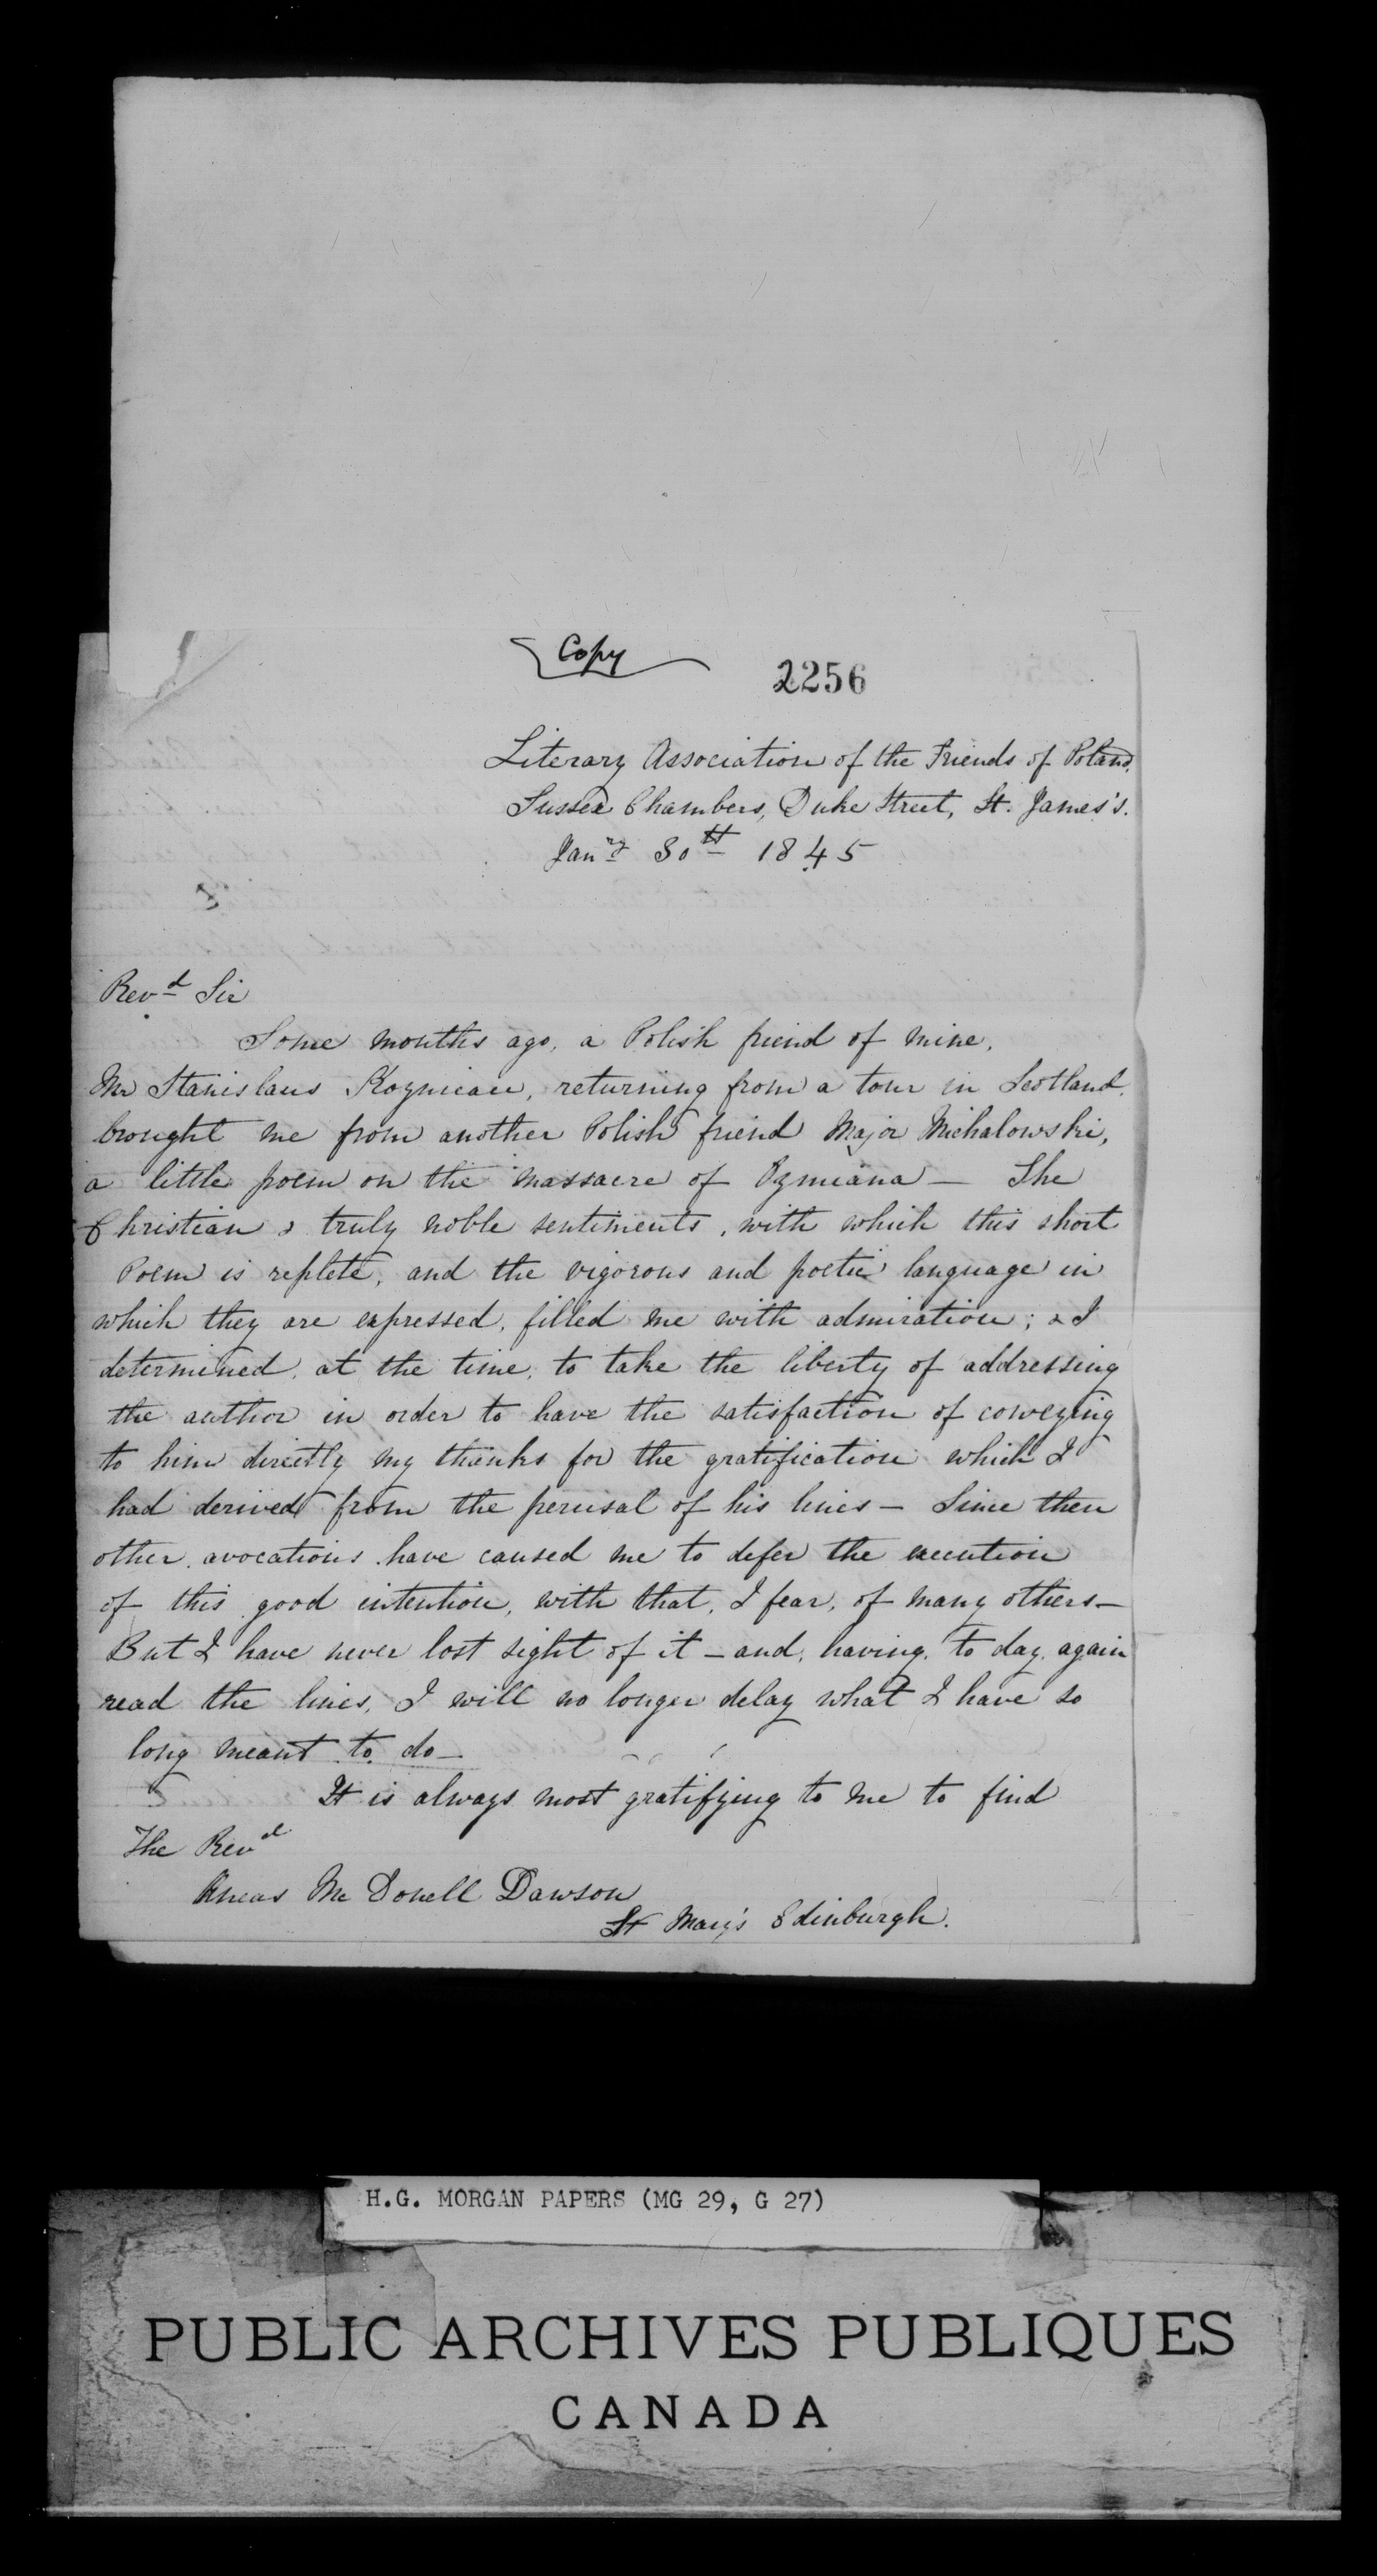 Copy
2256
Literary Association of the Friends of Poland,
Sussex Chambers, Duke Street, St. James's.
Jan^ry 30th 1845
Rev^d Sir
Some months ago, a Polish friend of mine,
Mr Stanislaus Kozmian, returning from a tour in Scotland,
brought me from another Polish friend Major Michalowski,
a little poem on the massacre of Ozmiana — The
Christian & truly noble sentiments, with which this short
Poem is replete, and the vigorous and poetic language in
which they are expressed, filled me with admiration; & I
determined, at the time, to take the liberty of addressing
the author in order to have the satisfaction of conveying
to him directly my thanks for the gratification which I
had derived from the perusal of his lines — Since then
other avocations have caused me to defer the execution
of this good intention, with that, I fear, of many others —
But I have never lost sight of it — and, having, to day, again
read the lines, I will no longer delay what I have so
long meant to do —
It is always most gratifying to me to find
The Rev^d
Aneas Mc Donell Dawson
St Mary's Edinburgh.
H.G. MORGAN PAPERS (MG 29, G 27)
PUBLIC ARCHIVES PUBLIQUES
CANADA